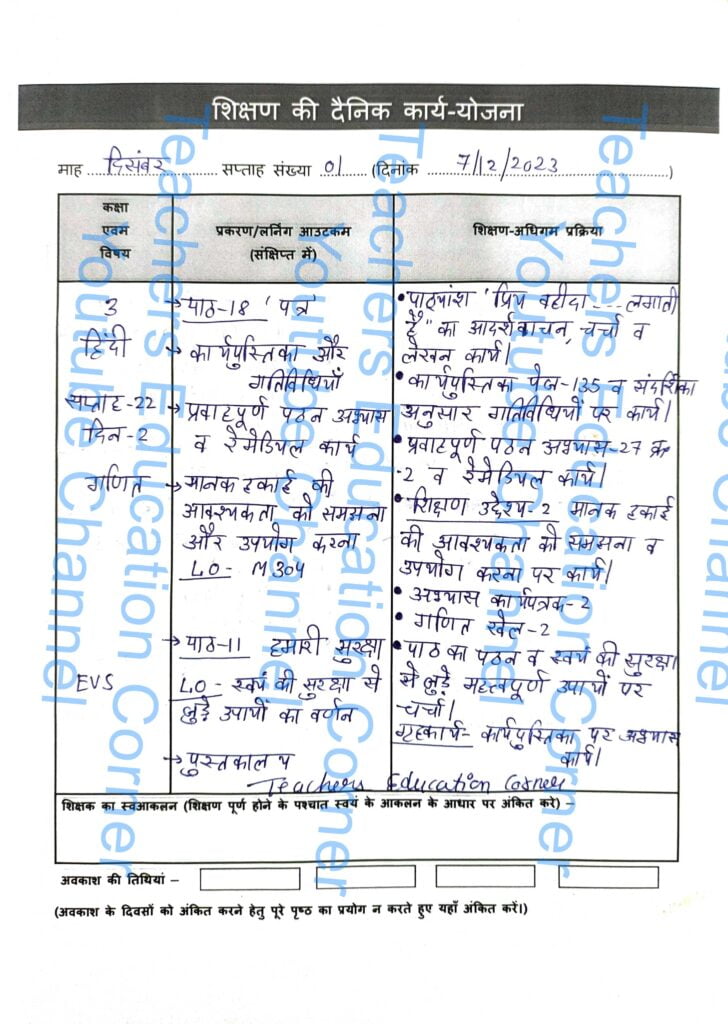 शिक्षण की दैनिक कार्य-योजना
माह दिसंबर सप्ताह संख्या 01 (दिनांक 7/12/2023)
कक्षा
एवम
विषय
प्रकरण/लर्निंग आउटकम
(संक्षिप्त में)
शिक्षण-अधिगम प्रक्रिया
3
हिंदी
सप्ताह-22
दिन-2
→ पाठ-18 'पत्र'
→ कार्यपुस्तिका और
गतिविधियाँ
→ प्रवाहपूर्ण पठन अभ्यास
व रेमेडियल कार्य
• पाठ्यांश 'प्रिय वहीदा --- लगाती
है" का आदर्शवाचन, चर्चा व
लेखन कार्य।
• कार्यपुस्तिका पेज-135 व संदर्शिका
अनुसार गतिविधियों पर कार्य।
• प्रवाहपूर्ण पठन अभ्यास-27 क्र
-2 व रेमेडियल कार्य।
गणित
→ मानक इकाई की
आवश्यकता को समझना
और उपयोग करना
LO - M304
• शिक्षण उद्देश्य-2 मानक इकाई
की आवश्यकता को समझना व
उपयोग करना पर कार्य।
• अभ्यास कार्यपत्रक-2
• गणित खेल-2
EVS
→ पाठ-11 हमारी सुरक्षा
LO - स्वयं की सुरक्षा से
जुड़े उपायों का वर्णन
→ पुस्तकालय
• पाठ का पठन व स्वयं की सुरक्षा
से जुड़े महत्वपूर्ण उपायों पर
चर्चा।
गृहकार्य- कार्यपुस्तिका पर अभ्यास
कार्य।
Teachers Education Corner
शिक्षक का स्वआकलन (शिक्षण पूर्ण होने के पश्चात स्वयं के आकलन के आधार पर अंकित करे) –
अवकाश की तिथियां –
(अवकाश के दिवसों को अंकित करने हेतु पूरे पृष्ठ का प्रयोग न करते हुए यहाँ अंकित करें।)
Teachers Education Corner
Youtube Channel
Teachers Education Corner
Youtube Channel
Teachers Education Corner
Youtube Channel